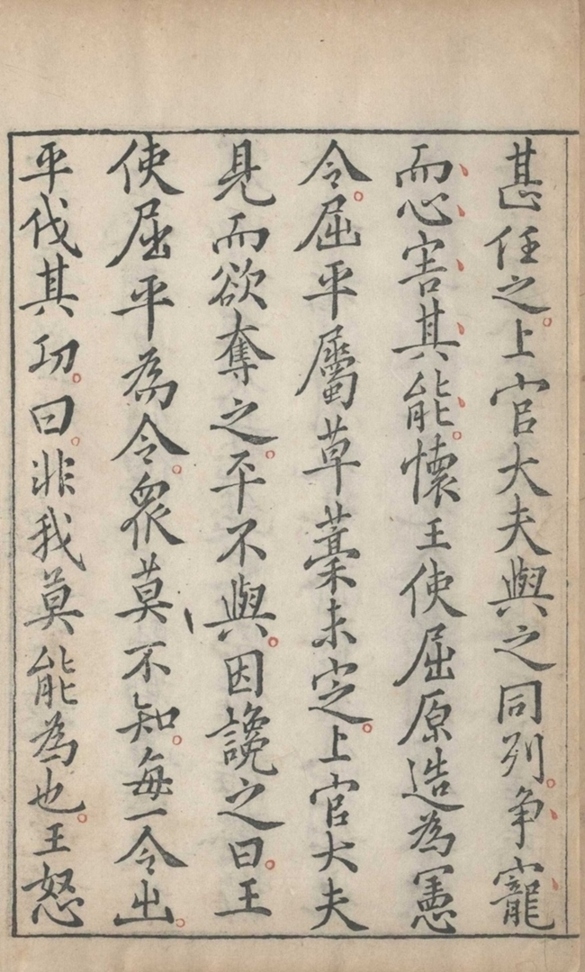 甚任之上官大夫與之同列争寵
而心害其能懷王使屈原造為憲
令屈平屬草藳未定上官大夫
見而欲奪之平不與因讒之曰王
使屈平為令衆莫不知每一令出
平伐其功曰非我莫能為也王怒